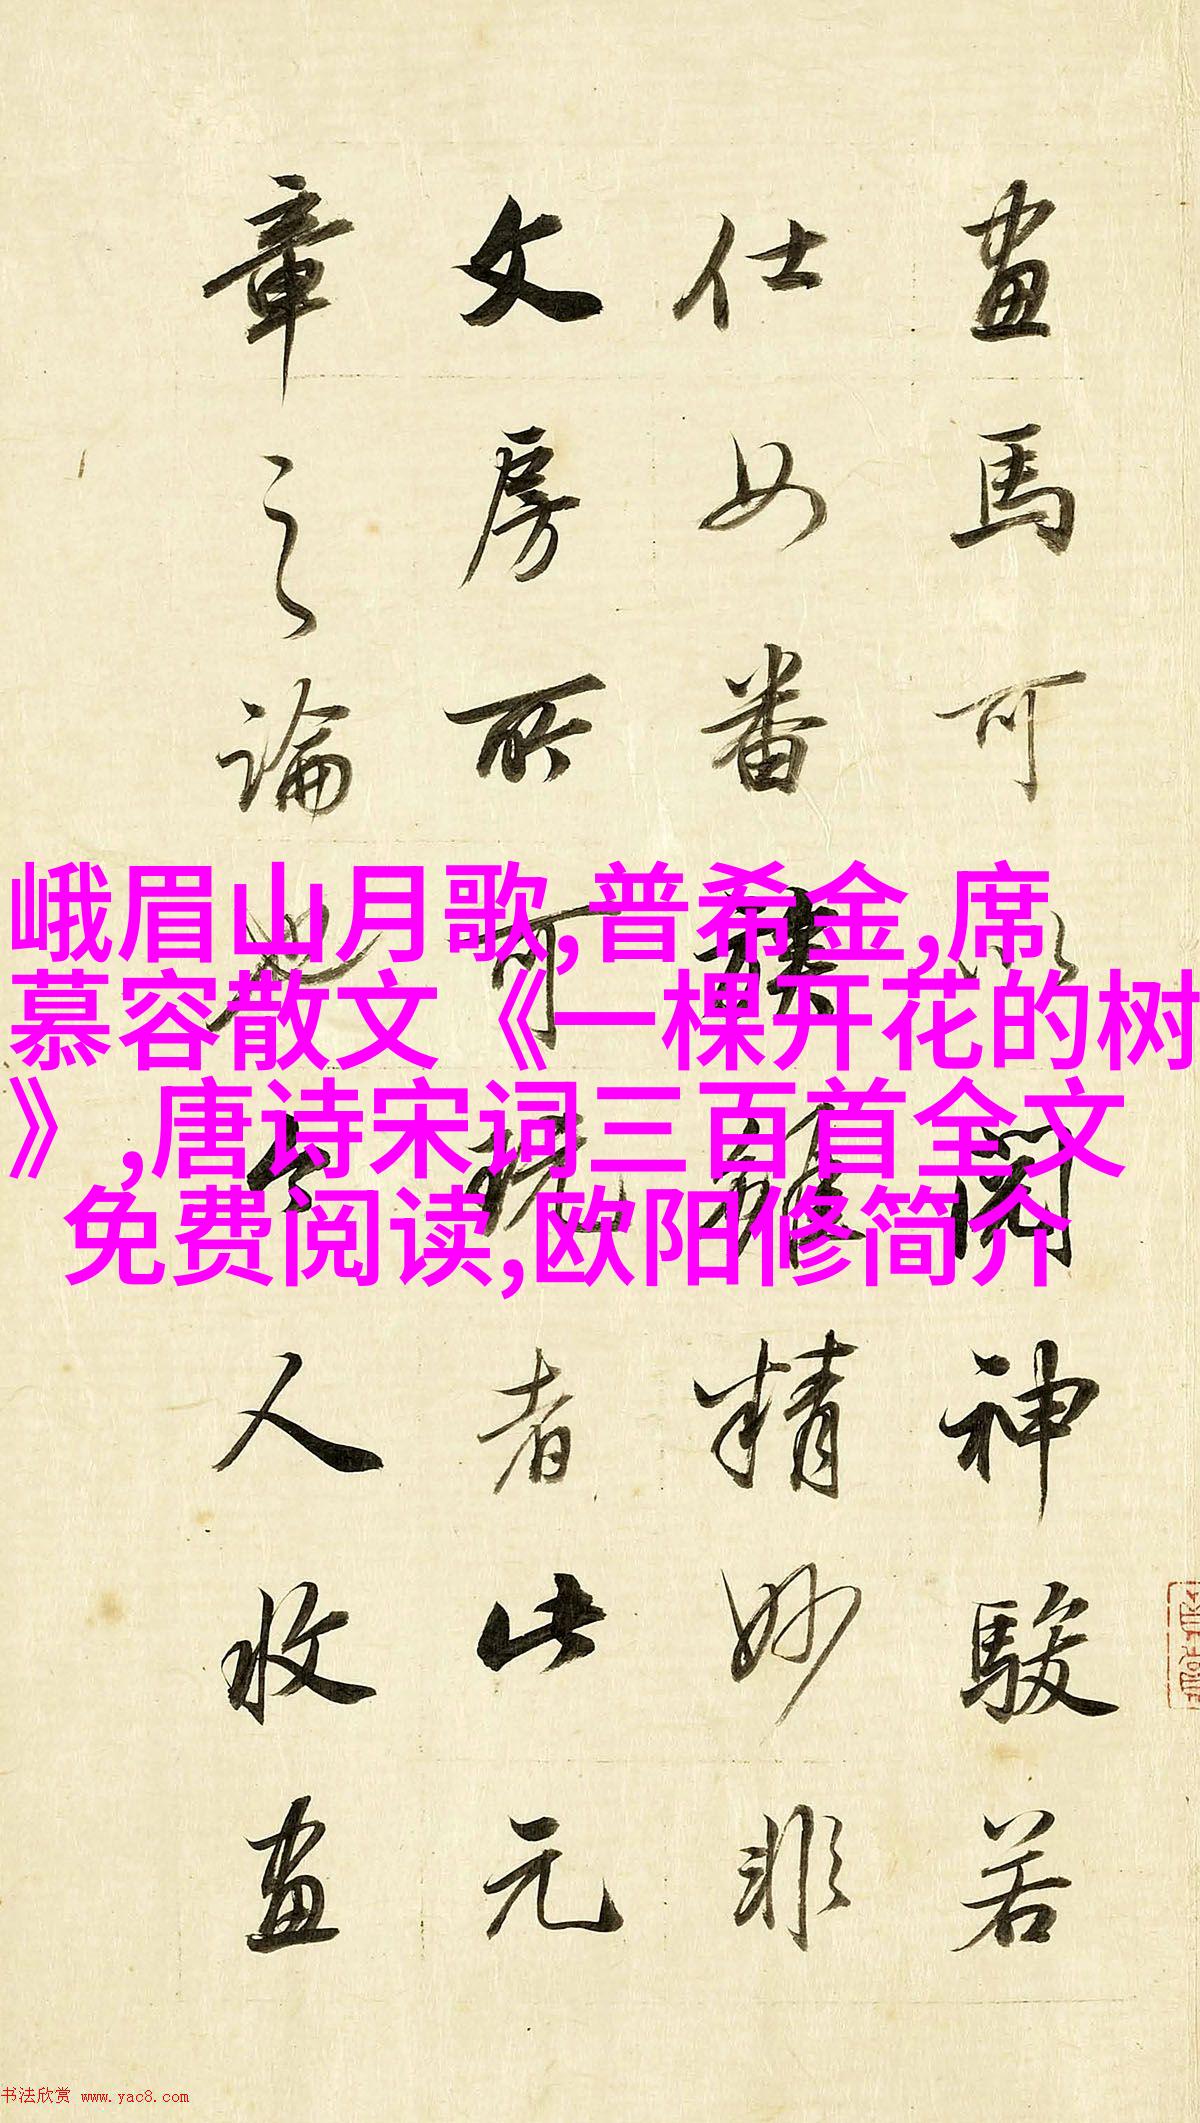 畫馬可以閱神駿若
仕女番族雖精妙非
文房所可玩者此元
章之論也今人收畫
峨眉山月歌,普希金,席
慕容散文《一棵开花的树
》,唐诗宋词三百首全文
免费阅读,欧阳修简介
书法欣赏 www.yac8.com